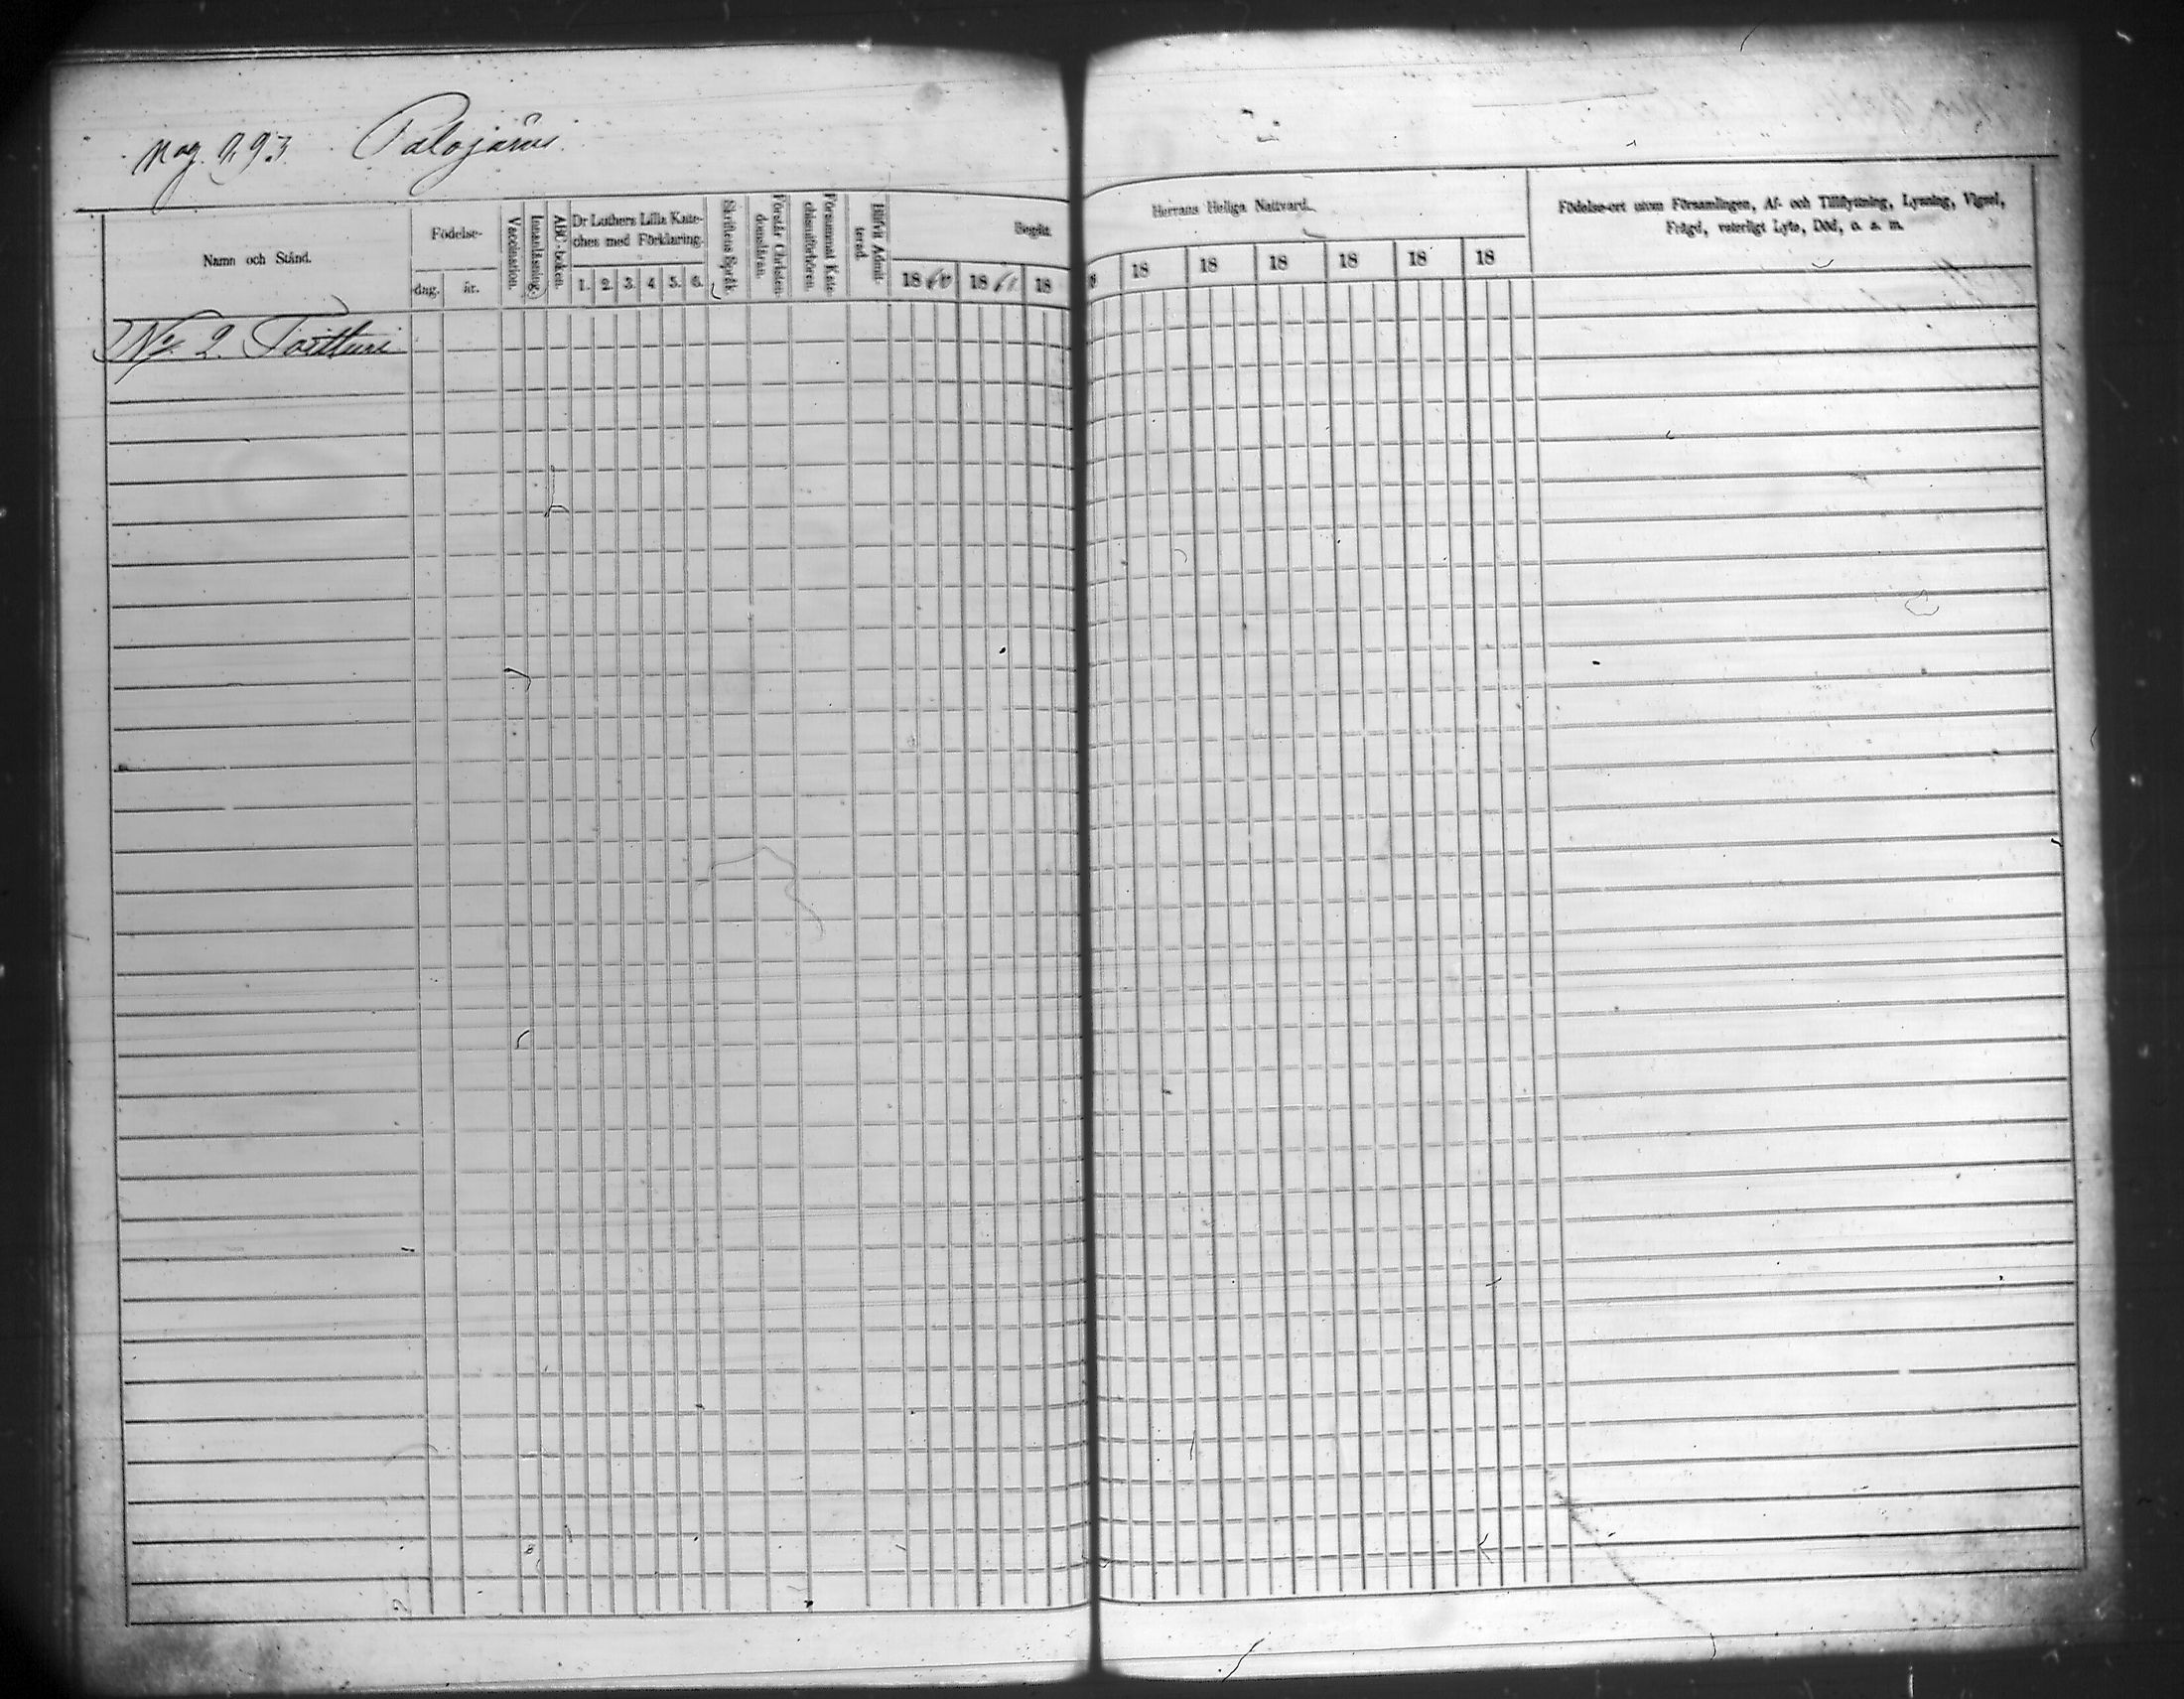 pag. 993 Palojärvi
Namn och Stånd.
Födelse-
dag.
år.
Vaccination.
Innanläsning.
ABC-boken.
Dr Luthers Lilla Kate-
ches med Förklaring.
1. 2. 3. 4. 5. 6.
Skriftens Språk.
Förstår Christen-
domsläran.
Försummat Kate-
chismiförhören.
Blifvit Admit-
terad.
Begått
Herrans Heliga Nattvard.
1860 1861 18
18 18 18 18 18 18
Födelse-ort utom Församlingen, Af- och Tillflyttning, Lysning, Vigsel,
Frägd, veterligt Lyte, Död, o. s. m.
No 2. Toitturi